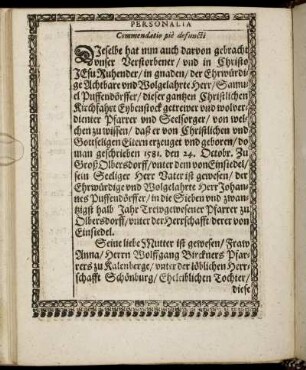 PERSONALIA
Commendatio piè defuncti
DIeselbe hat nun auch darvon gebracht
vnser Verstorbener / vnd in Christo
JEsu Ruhender / in gnaden / der Ehrwürdi-
ge Achtbare vnd Wolgelahrte Herr / Samu-
el Puffendörffer / dieser gantzen Christlichen
Kirchfahrt Eybenstock getrewer vnd wolver-
dienter Pfarrer vnd Seelsorger / von wel-
chen zu wissen / daß er von Christlichen vnd
Gottseligen Eltern erzeuget vnd geboren / do
man geschrieben 1581. den 24. Octobr. Zu
Groß Olbersdorff / vnter dem von Einsiedel /
sein Seeliger Herr Vater ist gewesen / der
Ehrwürdige vnd Wolgelahrte Herr Johan-
nes Puffendörffer / in die Sieben vnd zwan-
tzigst halb Jahr Trewgewesener Pfarrer zu
Olbersdorff / vnter der Herrschafft derer von
Einsiedel.
Seine liebe Mutter ist gewesen / Fraw
Anna / Herrn Wolffgang Birckners Pfar-
rers zu Kalenberge / vnter der löblichen Herr-
schafft Schönburg / Eheleiblichen Tochter /
diese